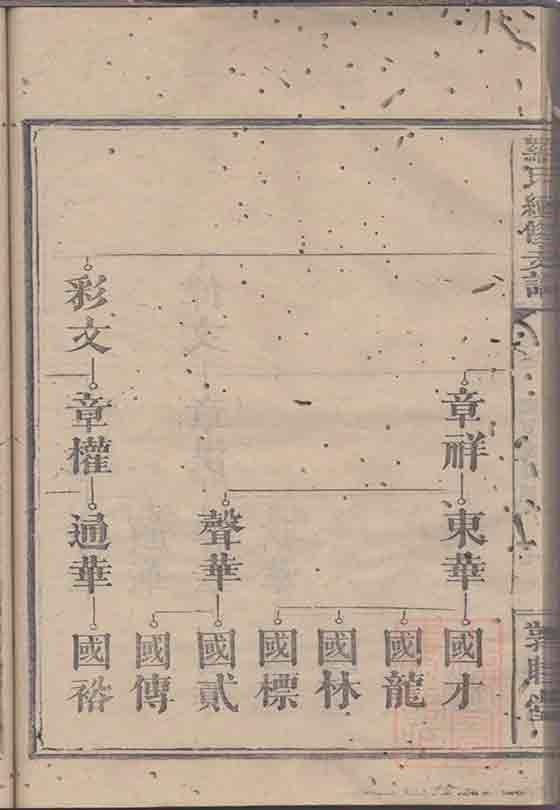 羅氏經修支譜
章祥
東華
國才
國龍
國林
國標
聲華
國貳
國傳
彩文
章權
過華
國裕